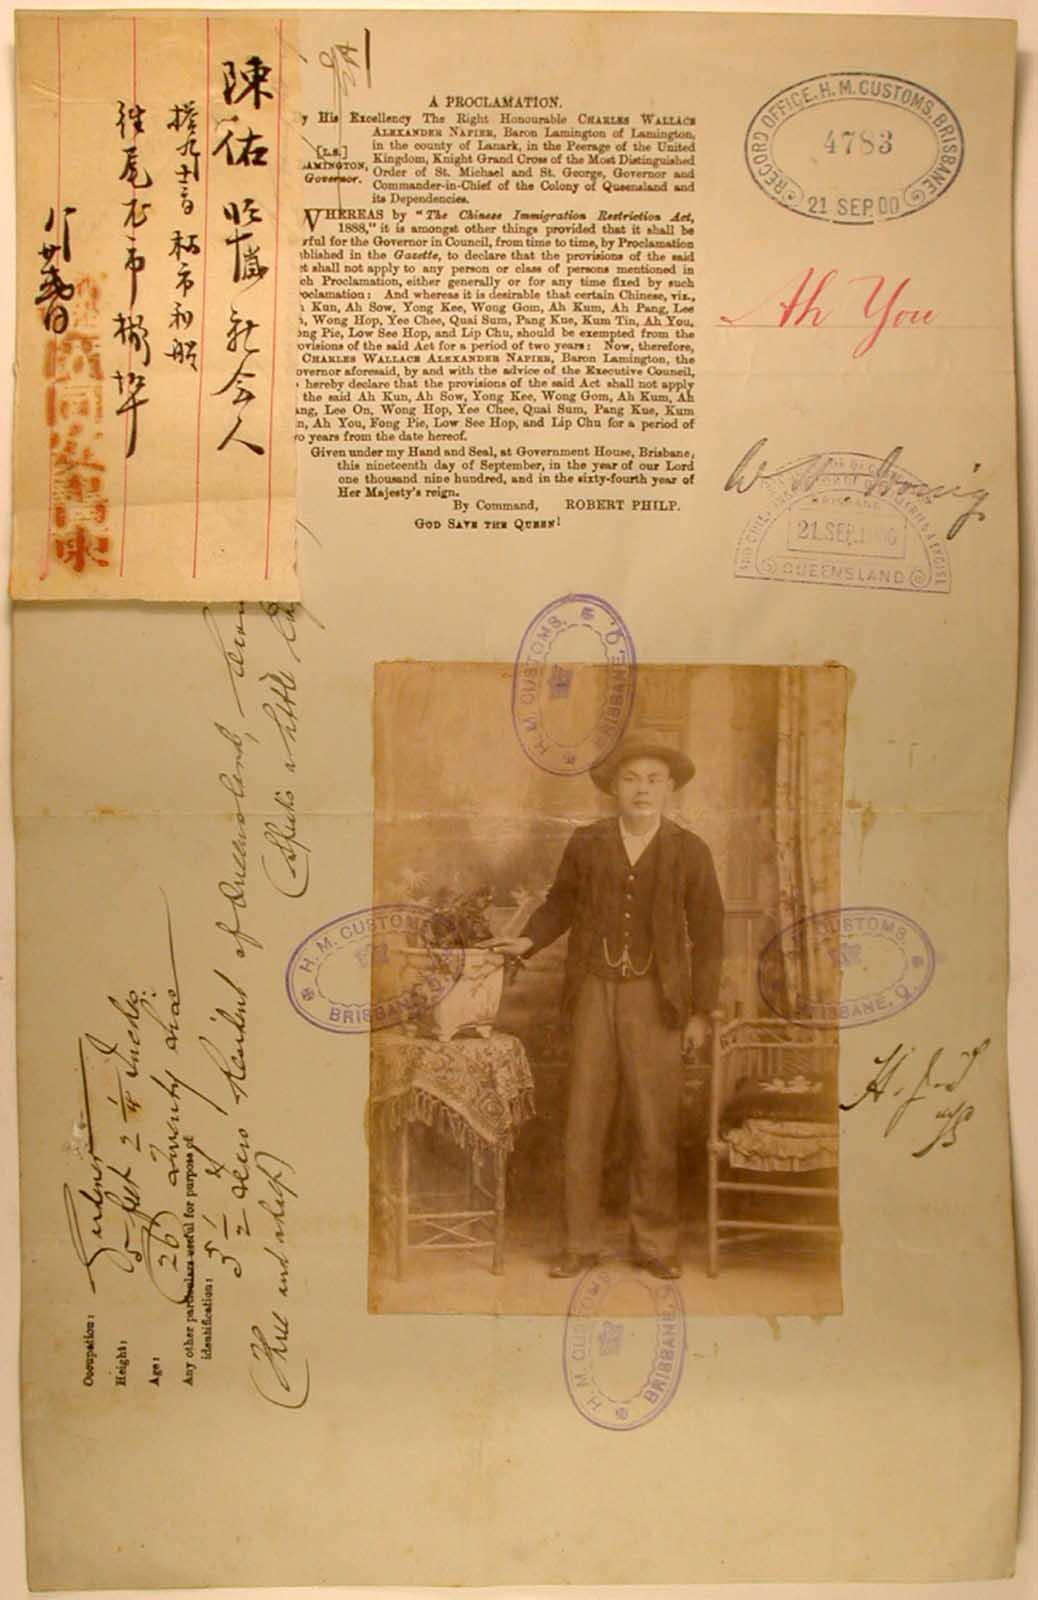 陳佑
新会人
A PROCLAMATION.
His Excellency The Right Honourable CHARLES WALLACE
ALEXANDER NAPIER, Baron Lamington of Lamington,
in the county of Lanark, in the Peerage of the United
[L.S.] Kingdom, Knight Grand Cross of the Most Distinguished
AMINGTON, Order of St. Michael and St. George, Governor and
Governor. Commander-in-Chief of the Colony of Queensland and
its Dependencies.
WHEREAS by "The Chinese Immigration Restriction Act,
1888," it is amongst other things provided that it shall be
rful for the Governor in Council, from time to time, by Proclamation
blished in the Gazette, to declare that the provisions of the said
ct shall not apply to any person or class of persons mentioned in
ch Proclamation, either generally or for any time fixed by such
oclamation: And whereas it is desirable that certain Chinese, viz.,
Kun, Ah Sow, Yong Kee, Wong Gom, Ah Kum, Ah Pang, Lee
n, Wong Hop, Yee Chee, Quai Sum, Pang Kue, Kum Tin, Ah You,
ng Pie, Low See Hop, and Lip Chu, should be exempted from the
ovisions of the said Act for a period of two years: Now, therefore,
CHARLES WALLACE ALEXANDER NAPIER, Baron Lamington, the
overnor aforesaid, by and with the advice of the Executive Council,
hereby declare that the provisions of the said Act shall not apply
the said Ah Kun, Ah Sow, Yong Kee, Wong Gom, Ah Kum, Ah
ang, Lee On, Wong Hop, Yee Chee, Quai Sum, Pang Kue, Kum
n, Ah You, Fong Pie, Low See Hop, and Lip Chu for a period of
o years from the date hereof.
Given under my Hand and Seal, at Government House, Brisbane,
this nineteenth day of September, in the year of our Lord
one thousand nine hundred, and in the sixty-fourth year of
Her Majesty's reign.
By Command, ROBERT PHILP.
GOD SAVE THE QUEEN!
RECORD OFFICE, H.M. CUSTOMS, BRISBANE
4783
21 SEP. 00
Ah You
BRISBANE
21 SEP. 1900
QUEENSLAND
H.M. CUSTOMS, BRISBANE, Q.
H.M. CUSTOMS, BRISBANE, Q.
H.M. CUSTOMS, BRISBANE, Q.
H.M. CUSTOMS, BRISBANE, Q.
Occupation: Gardener
Height: 5 feet 2 1/4 inches
Age: (26) twenty six
Any other particulars useful for purpose of
identification: 3 1/2 years Resident of Queensland,
(Three and a half) (Speaks a little